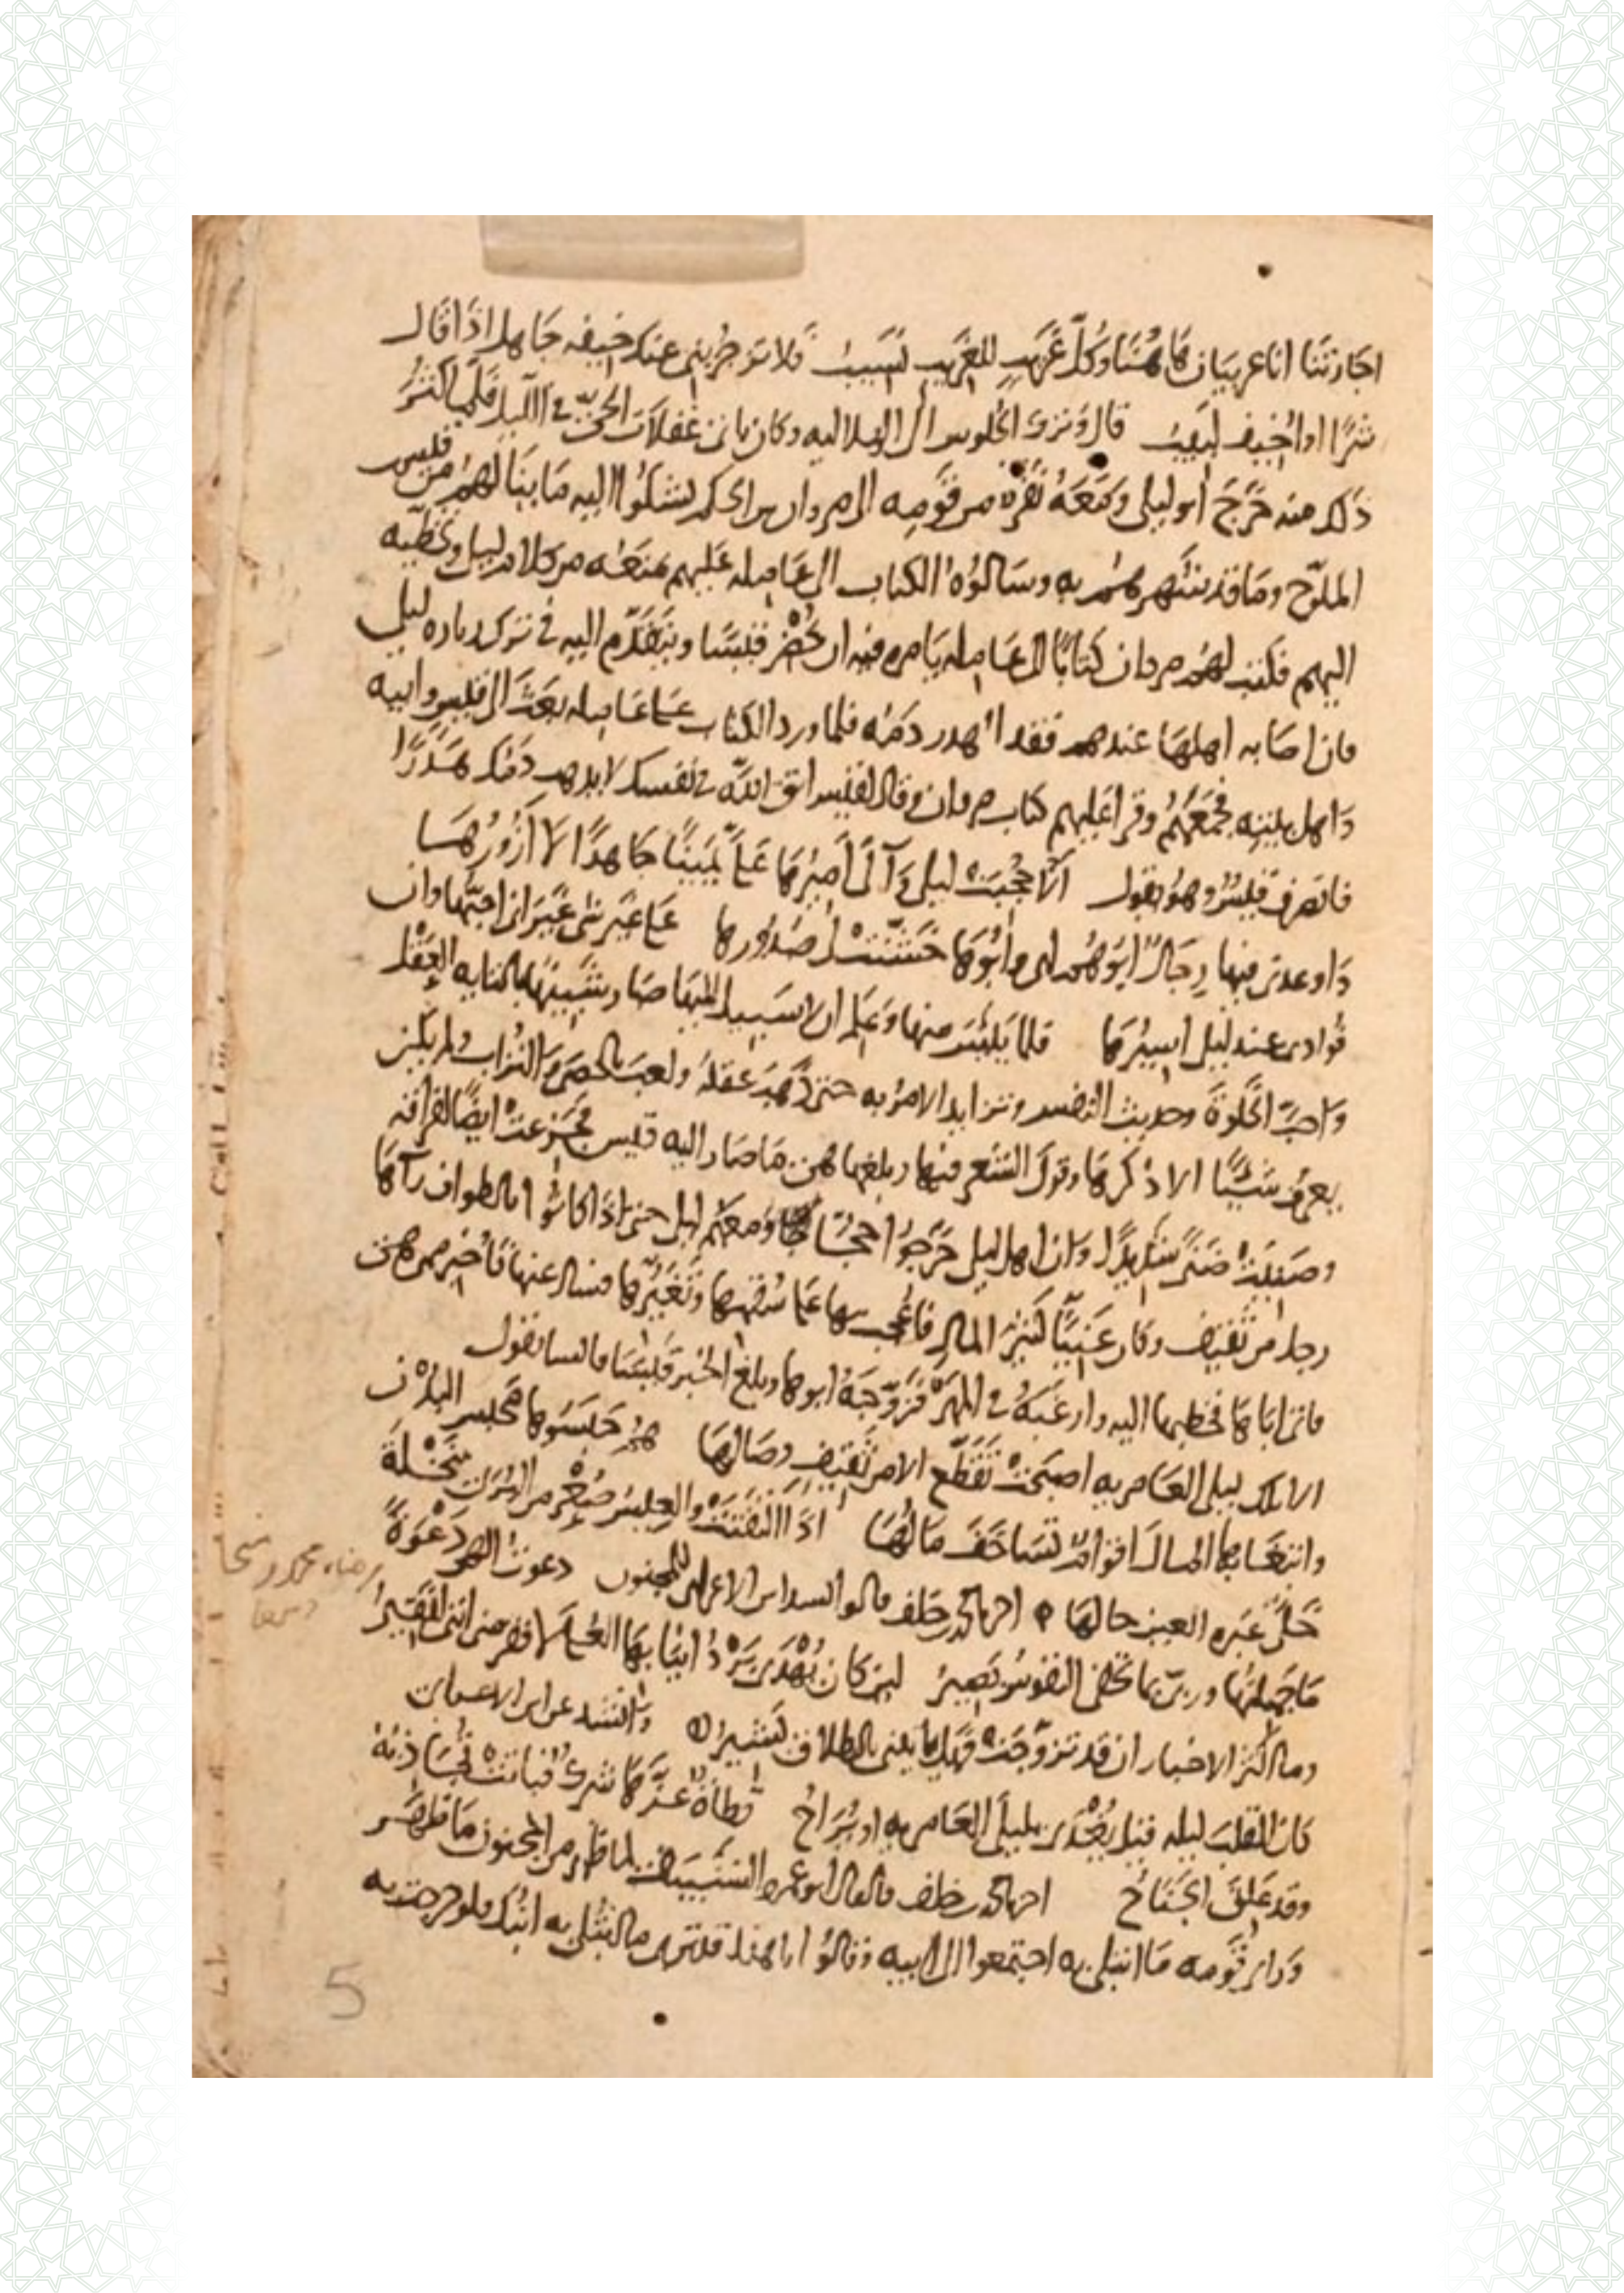 اجارتنا انا غريبان هاهنا وكل غريب للغريب نسيب فلا تزجريني عنك خيفه جاهل اذا قال
شرا او اخيف لبيب قال وترك الجلوس الى اليه وكان ياتي غفلات الحي في الليل فلما كثر
ذلك منه خرج ابو ليلى ومعه نفر من قومه الى مروان بن الحكم ليشكوا اليه ما ينالهم من قيس
الملوح وما قد يشتهرهم به وسالوه الكتاب الى عامله عليهم بمنعه من كلام ليلى ويخطيه
اليهم فكتب لهم مروان كتابا الى عامله يامره فيه ان يحضر قيسا ويتقدم اليه في ترك زياره ليلى
فان اصابه اهلها عندهم فقد اهدر دمه فلما ورد الكتاب على عامله بعث الى قيس وابيه
واهل بيته فجمعهم وقرا عليهم كتاب مروان وقال لقيس اتق الله في نفسك لا يذهب دمك هدرا
فانصرف قيس وهو يقول الا حجبت ليلى وآلى اميرها على يمينا جاهدا لا ازورها
واوعدني فيها رجال ابوهم ابي وابوها خشنت لي صدورها على غير شي غير اني احبها وان
فوادي عند ليلى اسيرها فلما يئس منها وعلم ان لا سبيل اليها صار شبيها بالتايه العقل
واحب الخلوة وحديث النفس وتزايد الامر به حتى ذهب عقله ولعب بالحصى والتراب ولم يكن
يعرف شيئا الا ذكرها وقول الشعر فيها وبلغها هي ما صار اليه قيس فجزعت ايضا لفراقه
وضنيت ضنى شديدا وان اهل ليلى خرجوا حجاجا ومعهم ليلى حتى اذا كانوا بالطواف رآها
رجل من ثقيف وكان غنيا كثير المال فاعجب بها على سقمها وتغيرها فسال عنها فاخبر من هي
فاتى اباها فخطبها اليه وارغبه في المهر فزوجه ابوها وبلغ الخبر قيسا فانشا يقول
الا تلك ليلى العامريه اصبحت تقطع الا من ثقيف وصالها هم حبسوها محبس البدن
وابتغا بها المال اقوام تساحف مالها اذا التفتت والعيس صعر من البرى بنخلة
خلى عبره العين حالها احمد بن خلف قالوا انشد ابن الاعرابي للمجنون دعوت الهي دعوة
ما جهلتها وربي بما تخفي النفوس بصير لئن كان يهدى برد انيابها العلى لافقر مني انني لفقير
وما اكثر الاخبار ان قد تزوجت فهل ياتيني بالطلاق بشير وانشد عن ابن الاعرابي
كان القلب ليله قيل يغدى بليلى العامريه او يراح قطاة عزها شرك فباتت تجاذبه
وقد علق الجناح احمد بن خلف قال قال ابو عمرو الشيباني لما ظهر من المجنون ما ظهر
وراى قومه ما ابتلي به اجتمعوا الى ابيه وقالوا يا هذا قد ترى ما ابتلي به ابنك فلو خرجت به
رضاء محمد
5